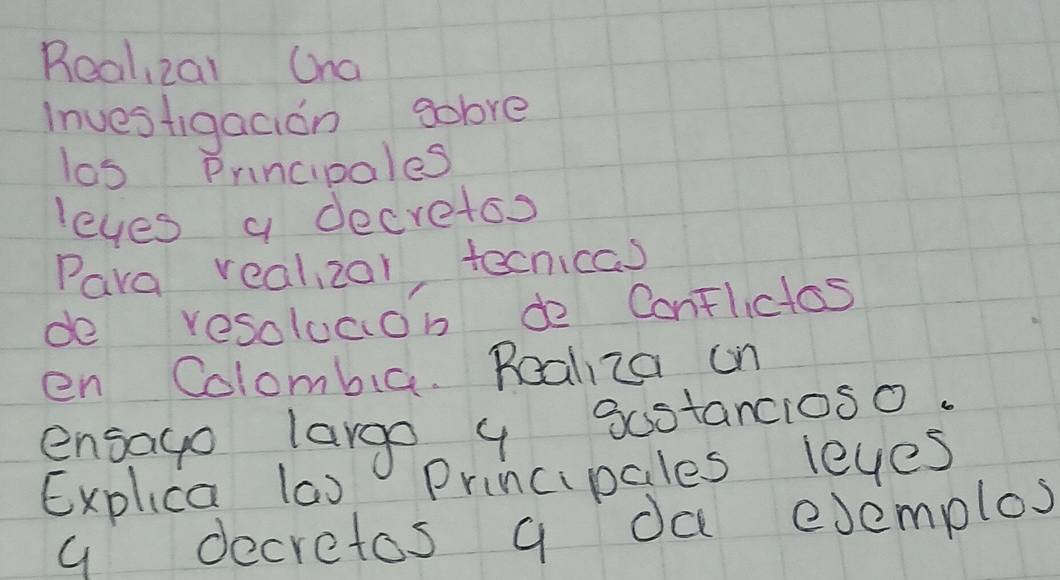 Realizar una
investigación sobre
las principales
leyes y decretos
Para realizar, tecnicas
de resolución de Conflictos
en Colombia. Realiza un
ensayo largo y sustancioso.
Explica las Principales leyes
y decretos y da ejemplos